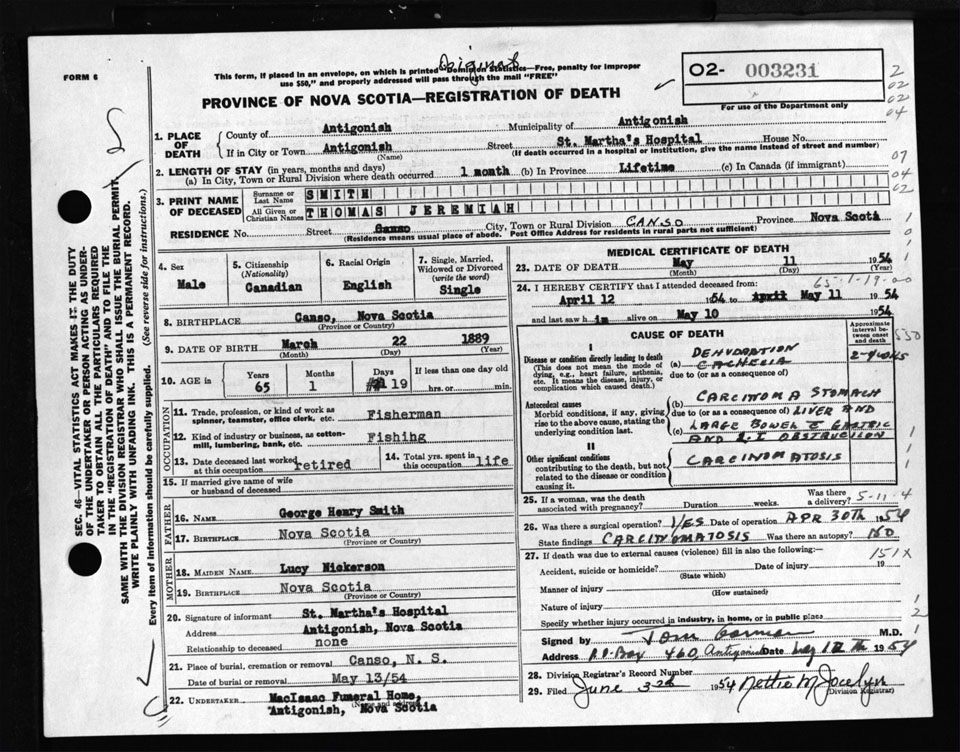 Original
FORM 6
This form, if placed in an envelope, on which is printed "Dominion Statistics—Free, penalty for improper
use $50," and properly addressed will pass through the mail "FREE"
PROVINCE OF NOVA SCOTIA—REGISTRATION OF DEATH
O2- 003231
For use of the Department only
2
02
02
04
1. PLACE OF DEATH
County of Antigonish Municipality of Antigonish
If in City or Town Antigonish Street St. Martha's Hospital House No.
(Name) (If death occurred in a hospital or institution, give the name instead of street and number)
2. LENGTH OF STAY (in years, months and days)
(a) In City, Town or Rural Division where death occurred 1 month (b) In Province Lifetime (c) In Canada (if immigrant)
07
04
02
3. PRINT NAME OF DECEASED
Surname or Last Name SMITH
All Given or Christian Names THOMAS JEREMIAH
RESIDENCE No. Street Canso City, Town or Rural Division CANSO Province Nova Scotia
(Residence means usual place of abode. Post Office Address for residents in rural parts not sufficient)
4. Sex
Male
5. Citizenship
(Nationality)
Canadian
6. Racial Origin
English
7. Single, Married, Widowed or Divorced
(write the word)
Single
8. BIRTHPLACE Canso, Nova Scotia
(Province or Country)
9. DATE OF BIRTH March 22 1889
(Month) (Day) (Year)
10. AGE in
Years 65
Months 1
Days 19
If less than one day old
hrs. or min.
OCCUPATION
11. Trade, profession, or kind of work as spinner, teamster, office clerk, etc. Fisherman
12. Kind of industry or business, as cotton-mill, lumbering, bank, etc. Fishing
13. Date deceased last worked at this occupation retired
14. Total yrs. spent in this occupation life
15. If married give name of wife or husband of deceased
FATHER
16. NAME George Henry Smith
17. BIRTHPLACE Nova Scotia
(Province or Country)
MOTHER
18. MAIDEN NAME Lucy Nickerson
19. BIRTHPLACE Nova Scotia
(Province or Country)
20. Signature of informant St. Martha's Hospital
Address Antigonish, Nova Scotia
Relationship to deceased none
21. Place of burial, cremation or removal Canso, N. S.
Date of burial or removal May 13/54
22. UNDERTAKER MacIsaac Funeral Home,
(Name and address)
Antigonish, Nova Scotia
MEDICAL CERTIFICATE OF DEATH
23. DATE OF DEATH May 11 1954
(Month) (Day) (Year)
65-1-19-00
24. I HEREBY CERTIFY that I attended deceased from:
April 12 1954 to April May 11 1954
and last saw him alive on May 10 1954
CAUSE OF DEATH
Approximate interval between onset and death
530
I
Disease or condition directly leading to death
(This does not mean the mode of dying, e.g., heart failure, asthenia, etc. It means the disease, injury, or complication which caused death.)
DEHYDRATION
(a) CACHEXIA
2-4 weeks
due to (or as a consequence of)
Antecedent causes
Morbid conditions, if any, giving rise to the above cause, stating the underlying condition last.
(b) CARCINOMA STOMACH
due to (or as a consequence of) LIVER AND
(c) LARGE BOWEL C GASTRIC
AND L.I OBSTRUCTION
II
Other significant conditions
contributing to the death, but not related to the disease or condition causing it.
CARCINOMATOSIS
25. If a woman, was the death associated with pregnancy? Duration weeks. Was there a delivery?
5-11-4
26. Was there a surgical operation? YES Date of operation APR 30TH 1954
State findings CARCINOMATOSIS Was there an autopsy? NO
27. If death was due to external causes (violence) fill in also the following:—
151X
Accident, suicide or homicide? Date of injury 19
(State which)
Manner of injury
(How sustained)
Nature of injury
Specify whether injury occurred in industry, in home, or in public place
Signed by Tom Gorman M.D.
Address P.O. Box 460, Antigonish Date May 12th 1954
28. Division Registrar's Record Number
29. Filed June 3rd 1954 Nettie M Jocelyn
(Division Registrar)
SEC. 46—VITAL STATISTICS ACT MAKES IT THE DUTY
OF THE UNDERTAKER OR PERSON ACTING AS UNDER-
TAKER TO OBTAIN ALL THE PARTICULARS REQUIRED
IN THE "REGISTRATION OF DEATH" AND TO FILE THE
SAME WITH THE DIVISION REGISTRAR WHO SHALL ISSUE THE BURIAL PERMIT.
WRITE PLAINLY WITH UNFADING INK. THIS IS A PERMANENT RECORD.
Every item of information should be carefully supplied. (See reverse side for instructions.)